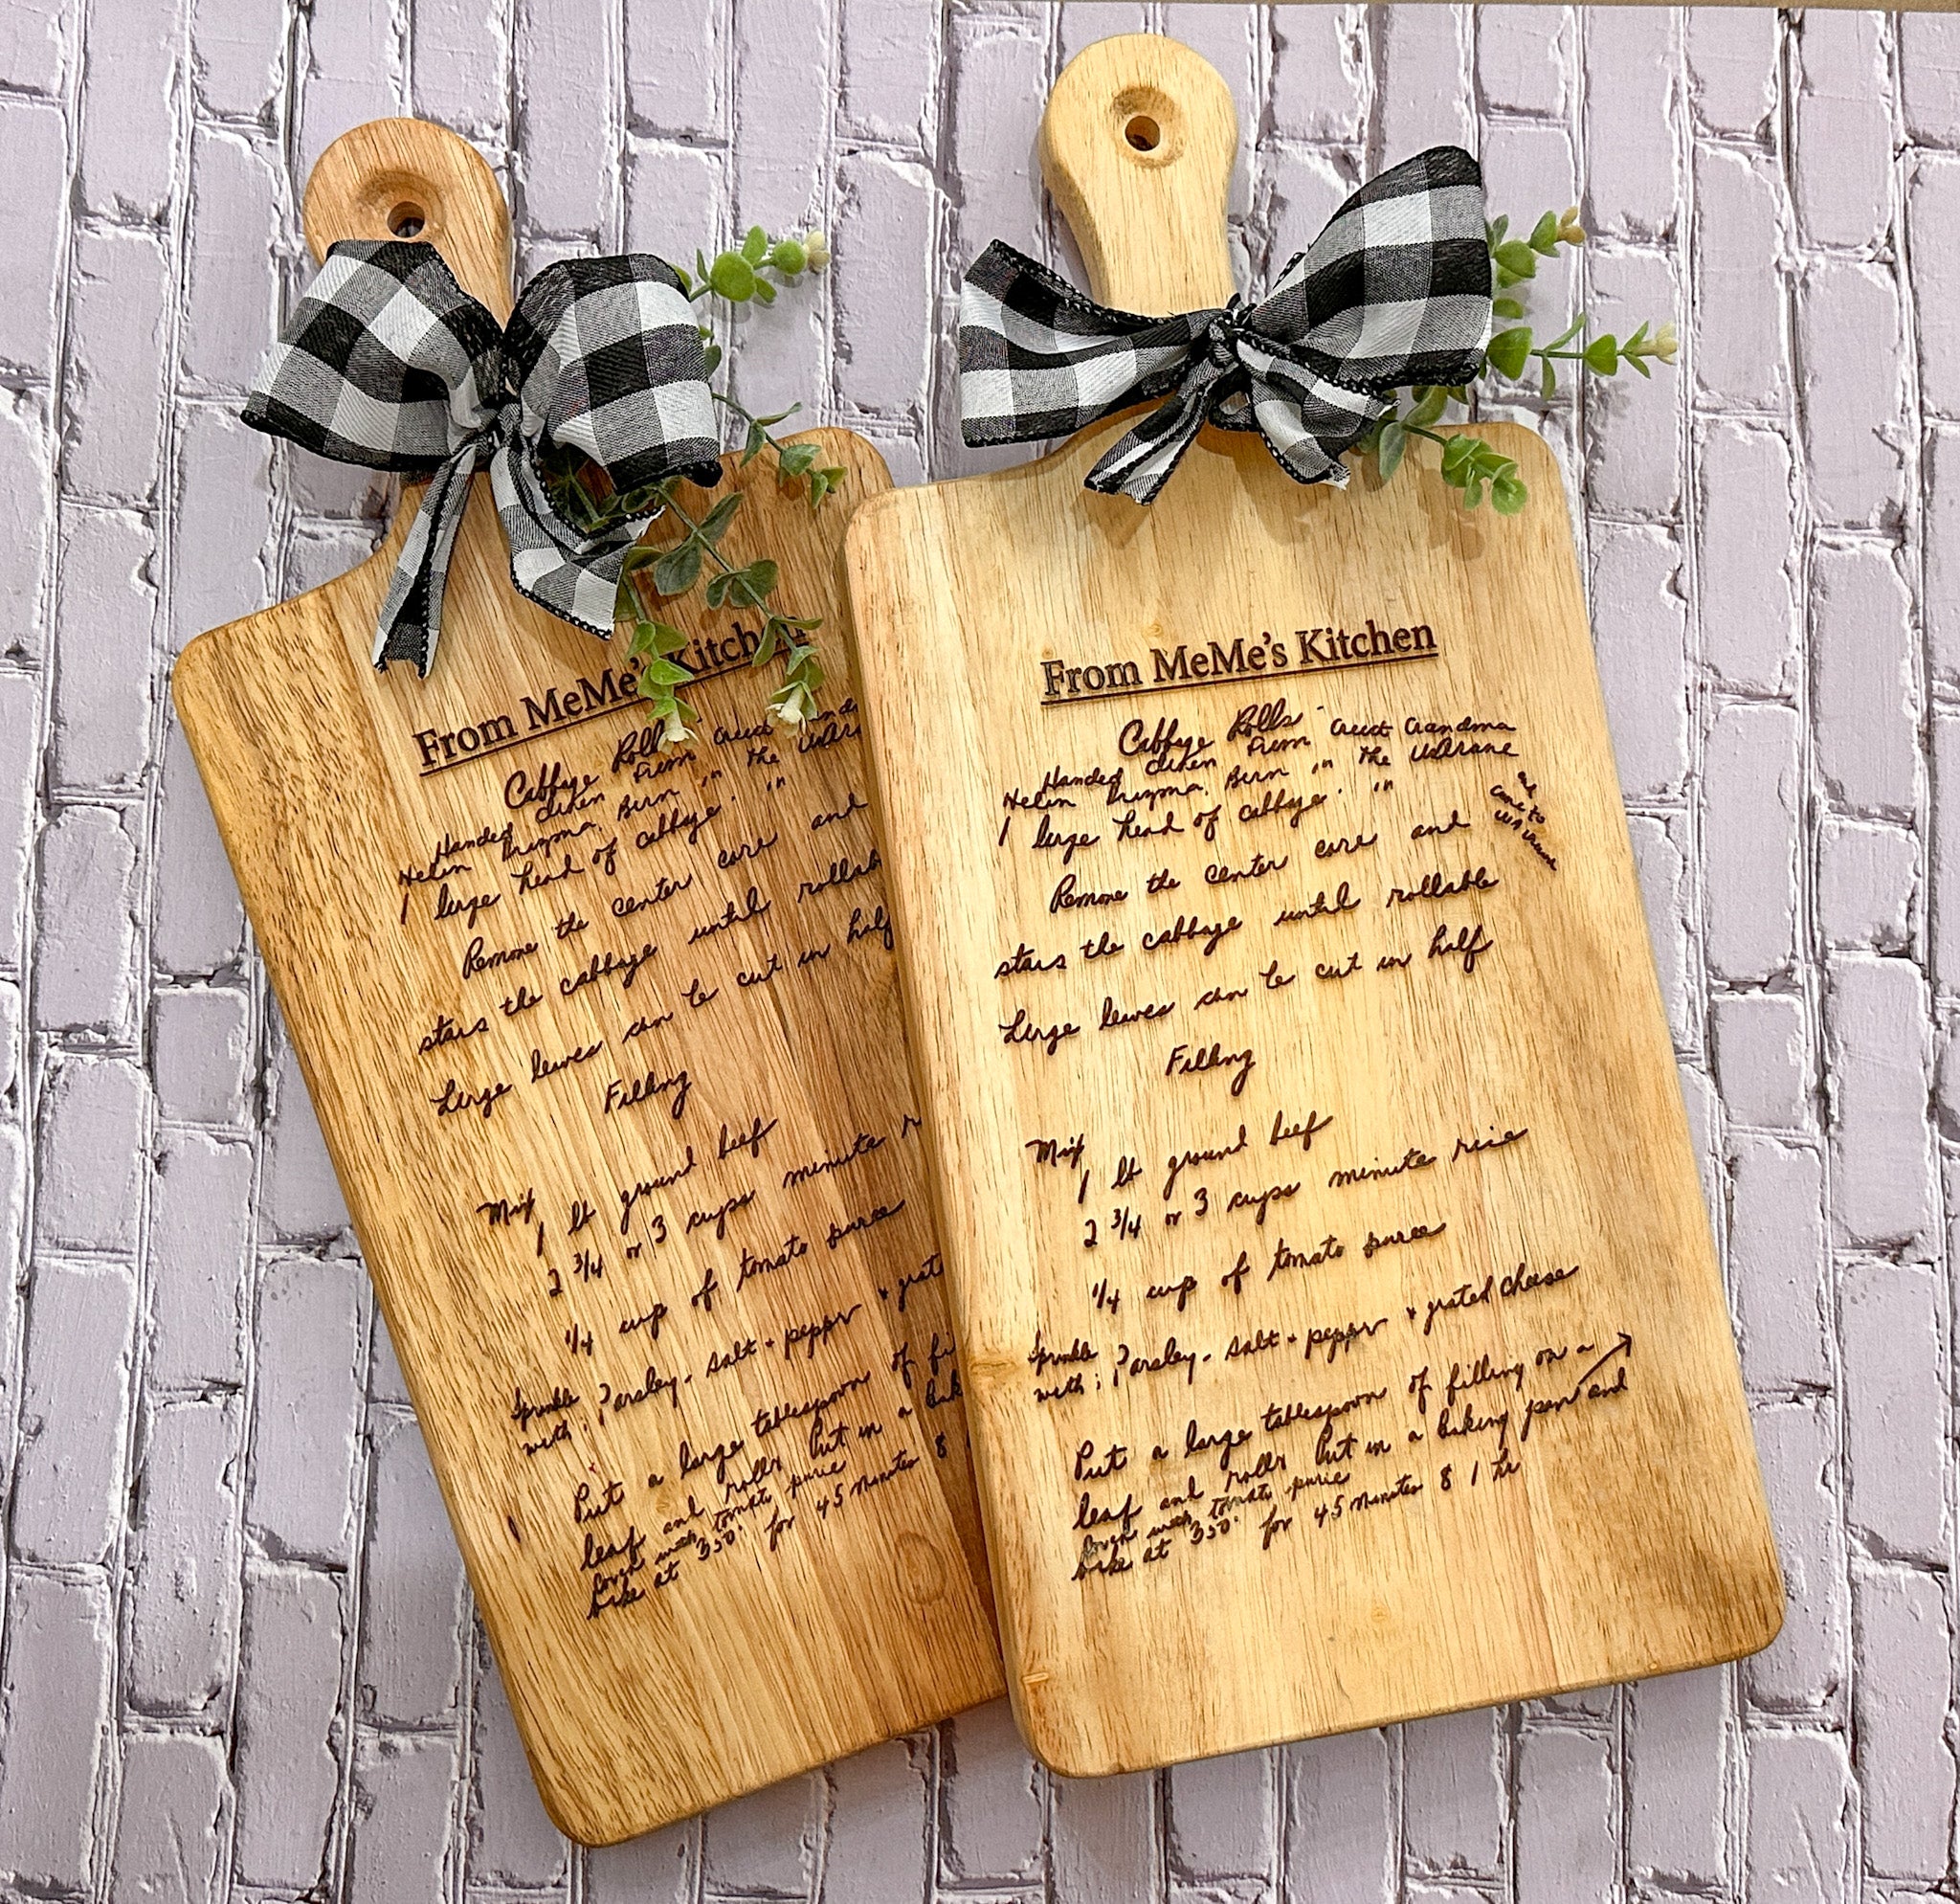 From MeMe's Kitchen
Cabbage Rolls
Handed down from Great Grandma
Helen Born in the Ukraine
and came to
1 large head of cabbage
Remove the center core and
the cabbage until rollable
Large leaves can be cut in half
Filling
Mix
1 lb ground beef
2 3/4 or 3 cups minute rice
1/4 cup of tomato puree
Sprinkle
with: Parsley - salt + pepper + grated cheese
Put a large tablespoon of filling on a
leaf and roll Put in a baking pan and
Cover with tomato puree
bake at 350° for 45 minutes 1 hr
From MeMe's Kitchen
Cabbage Roll
Handed down from Great
Helen Born in the
1 large head of cabbage
Remove the center core and
the cabbage until
Large leaves can be cut in half
Filling
Mix
1 lb ground beef
2 3/4 or 3 cups minute
1/4 cup of tomato puree
Sprinkle
with: Parsley - salt + pepper +
Put a large tablespoon of
leaf and roll Put in a
Cover with tomato puree
bake at 350° for 45 minutes